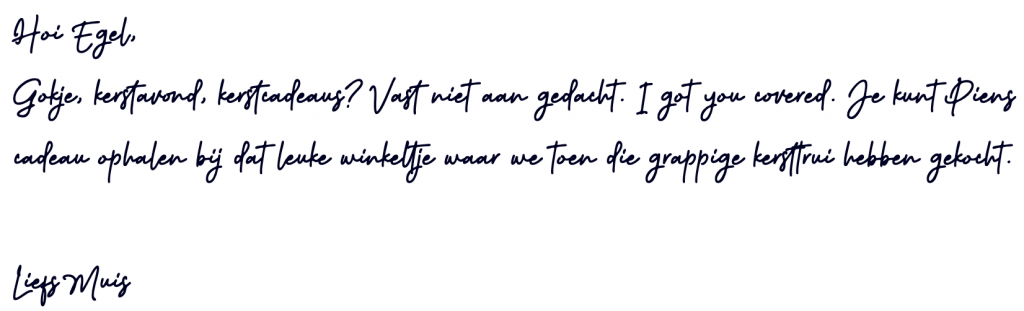 Hoi Egel,
Gokje, kerstavond, kerstcadeaus? Vast niet aan gedacht. I got you covered. Je kunt Piens
cadeau ophalen bij dat leuke winkeltje waar we toen die grappige kersttrui hebben gekocht.
Liefs Muis